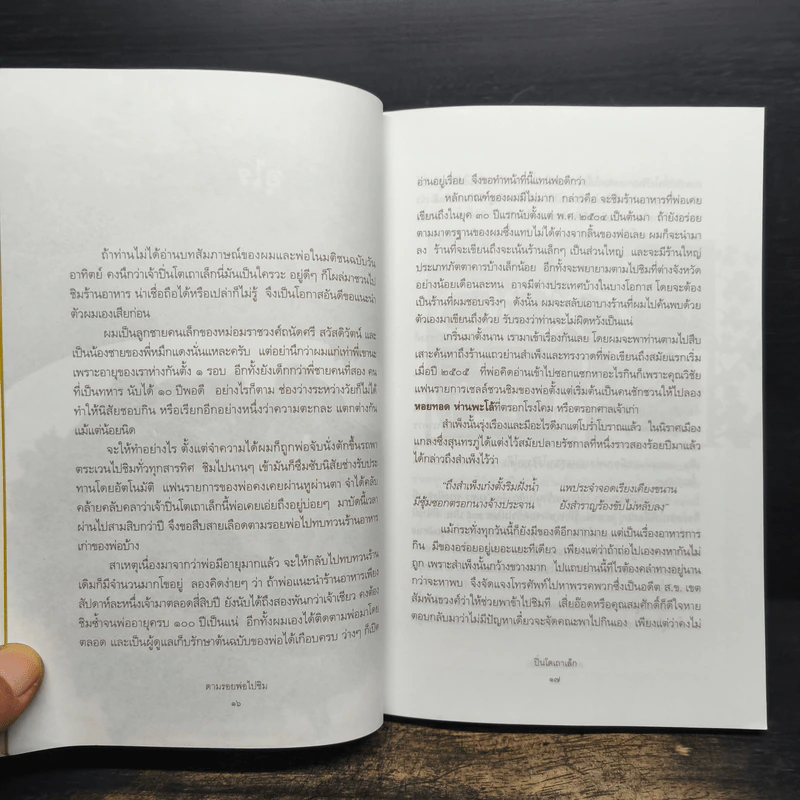 ถ้าท่านไม่ได้อ่านบทสัมภาษณ์ของผมและพ่อในมติชนฉบับวัน
อาทิตย์ คงนึกว่าเจ้าปิ่นโตเถาเล็กนี่มันเป็นใครวะ อยู่ดีๆ ก็โผล่มาชวนไป
ชิมร้านอาหาร น่าเชื่อถือได้หรือเปล่าก็ไม่รู้ จึงเป็นโอกาสอันดีขอแนะนำ
ตัวผมเองเสียก่อน
ผมเป็นลูกชายคนเล็กของหม่อมราชวงศ์ถนัดศรี สวัสดิวัตน์ และ
เป็นน้องชายของพี่หมึกแดงนั่นแหละครับ แต่อย่านึกว่าผมแก่เท่าพี่เขานะ
เพราะอายุของเราห่างกันตั้ง ๑ รอบ อีกทั้งยังเด็กกว่าพี่ชายคนที่สอง คน
ที่เป็นทหาร นับได้ ๑๐ ปีพอดี อย่างไรก็ตาม ช่องว่างระหว่างวัยก็ไม่ได้
ทำให้นิสัยชอบกิน หรือเรียกอีกอย่างหนึ่งว่าความตะกละ แตกต่างกัน
แม้แต่น้อยนิด
จะให้ทำอย่างไร ตั้งแต่จำความได้ผมก็ถูกพ่อจับนั่งตักขึ้นรถพา
ตระเวนไปชิมทั่วทุกสารทิศ ชิมไปนานๆ เข้ามันก็ซึมซับนิสัยช่างรับประ
ทานโดยอัตโนมัติ แฟนรายการของพ่อคงเคยผ่านหูผ่านตา จำได้คลับ
คล้ายคลับคลาว่าเจ้าปิ่นโตเถาเล็กนี้พ่อเคยเอ่ยถึงอยู่บ่อยๆ มาบัดนี้เวลา
ผ่านไปสามสิบกว่าปี จึงขอสืบสายเลือดตามรอยพ่อไปทบทวนร้านอาหาร
เก่าของพ่อบ้าง
สาเหตุเนื่องมาจากพ่อมีอายุมากแล้ว จะให้กลับไปทบทวนร้าน
เดิมก็มีจำนวนมากโขอยู่ ลองคิดง่ายๆ ว่า ถ้าพ่อแนะนำร้านอาหารเพียง
สัปดาห์ละหนึ่งเจ้ามาตลอดสี่สิบปี ยังนับได้ถึงสองพันกว่าเจ้าเชียว คงต้อง
ชิมซ้ำจนพ่ออายุครบ ๑๐๐ ปีเป็นแน่ อีกทั้งผมเองได้ติดตามพ่อมาโดย
ตลอด และเป็นผู้ดูแลเก็บรักษาต้นฉบับของพ่อได้เกือบครบ ว่างๆ ก็เปิด
ตามรอยพ่อไปชิม
๑๖
อ่านอยู่เรื่อย จึงขอทำหน้าที่นี้แทนพ่อดีกว่า
หลักเกณฑ์ของผมมีไม่มาก กล่าวคือ จะชิมร้านอาหารที่พ่อเคย
เขียนถึงในยุค ๓๐ ปีแรกนับตั้งแต่ พ.ศ. ๒๕๐๔ เป็นต้นมา ถ้ายังอร่อย
ตามมาตรฐานของผมซึ่งแทบไม่ได้ต่างจากลิ้นของพ่อเลย ผมก็จะนำมา
ลง ร้านที่จะเขียนถึงจะเน้นร้านเล็กๆ เป็นส่วนใหญ่ และจะมีร้านใหญ่
ประเภทภัตตาคารบ้างเล็กน้อย อีกทั้งจะพยายามตามไปชิมที่ต่างจังหวัด
อย่างน้อยเดือนละหน อาจมีต่างประเทศบ้างในบางโอกาส โดยจะต้อง
เป็นร้านที่ผมชอบจริงๆ ดังนั้น ผมจะสลับเอาบางร้านที่ผมไปค้นพบด้วย
ตัวเองมาเขียนถึงด้วย รับรองว่าท่านจะไม่ผิดหวังเป็นแน่
เกริ่นมาตั้งนาน เรามาเข้าเรื่องกันเลย โดยผมจะพาท่านตามไปสืบ
เสาะค้นหาถึงร้านแถวย่านสำเพ็งและทรงวาดที่พ่อเขียนถึงสมัยแรกเริ่ม
เมื่อปี ๒๕๐๕ ที่พ่อคิดอ่านเข้าไปซอกแซกหาอะไรกินก็เพราะคุณวิรัช
แฟนรายการเชลล์ชวนชิมของพ่อตั้งแต่เริ่มต้นเป็นคนชักชวนให้ไปลอง
หอยทอด ห่านพะโล้ที่ตรอกโรงโคม หรือตรอกศาลเจ้าเก่า
สำเพ็งนั้นรุ่งเรืองและมีอะไรดีมาแต่โบร่ำโบราณแล้ว ในนิราศเมือง
แกลงซึ่งสุนทรภู่ได้แต่งไว้สมัยปลายรัชกาลที่หนึ่งราวสองร้อยปีมาแล้ว
ได้กล่าวถึงสำเพ็งไว้ว่า
“ถึงสำเพ็งเก๋งตั้งริมฝั่งน้ำ แพประจำจอดเรียงเคียงขนาน
มีซุ้มซอกตรอกนางจ้างประจาน ยังสำราญร้องขับไม่หลับลง”
แม้กระทั่งทุกวันนี้ก็ยังมีของดีอีกมากมาย แต่เป็นเรื่องอาหารการ
กิน มีของอร่อยอยู่เยอะแยะทีเดียว เพียงแต่ว่าถ้าถ่อไปเองคงหากันไม่
ถูก เพราะสำเพ็งนั้นกว้างขวางมาก ไปแถบย่านนี้ทีไรต้องคลำทางอยู่นาน
กว่าจะหาพบ จึงจัดแจงโทรศัพท์ไปหาพรรคพวกซึ่งเป็นอดีต ส.ข. เขต
สัมพันธวงศ์ว่าให้ช่วยพาข้าไปชิมที เสี่ยอ๊อดหรือคุณสมศักดิ์ก็ดีใจหาย
ตอบกลับมาว่าไม่มีปัญหาเดี๋ยวจะจัดคณะพาไปกินเอง เพียงแต่ว่าคงไม่
ปิ่นโตเถาเล็ก
๑๗